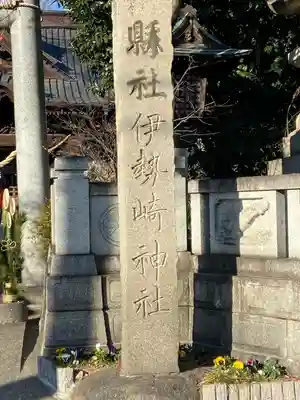 縣社伊勢崎神社